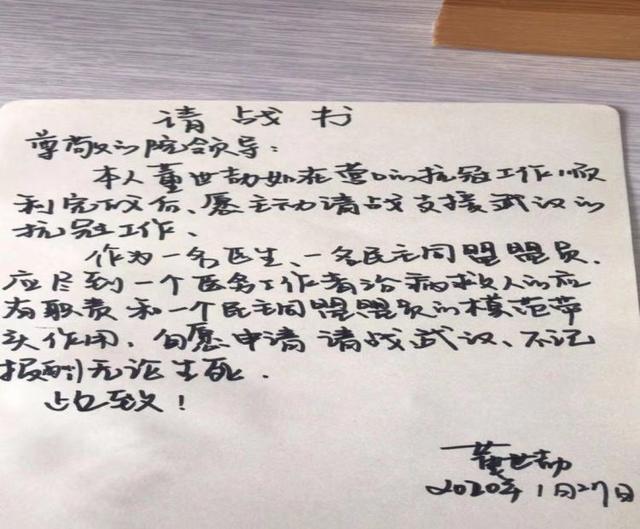 请战书
尊敬的院领导:
本人董世劼如在营口的抗冠工作顺
利完成后、愿主动请战支援武汉的
抗冠工作、
作为一名医生、一名民主同盟盟员.
应尽到一个医务工作者治病救人的应
有职责和一个民主同盟盟员的模范带
头作用、自愿申请请战武汉、不记
报酬无论生死.
此致!
董世劼
2020年1月27日